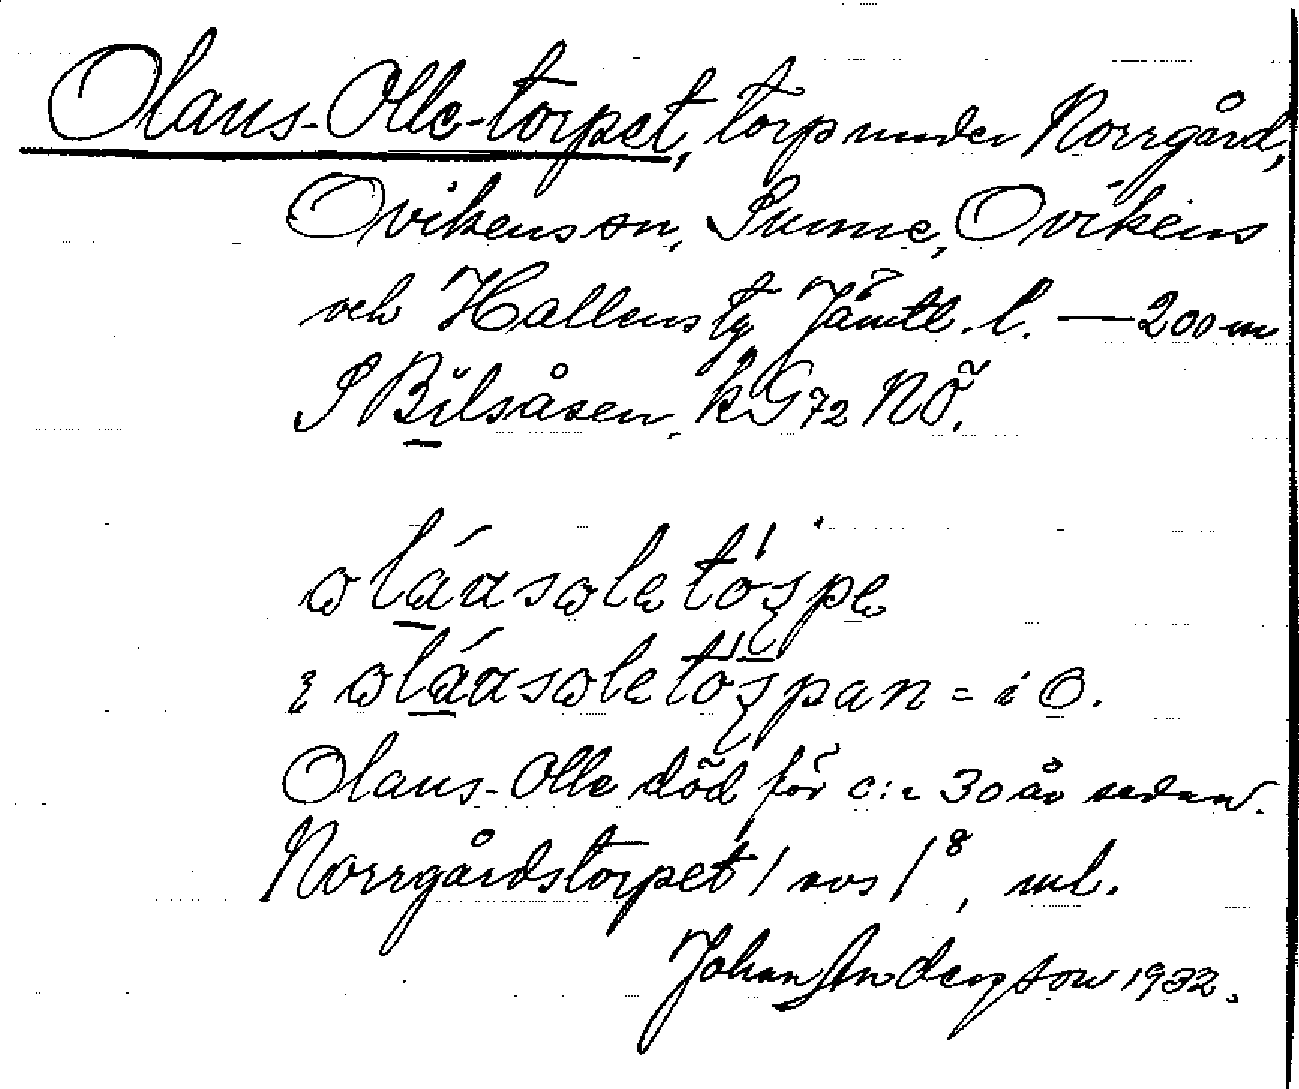 Olaus-Olle-torpet, torp under Norrgård,
Ovikens sn, Sunne, Ovikens
och Hallens tg Jämtl. l. — 200 m
S Bilsåsen, kG72 NÖ.
ɷláasɷle tóspe
ɷláasɷle tóspan = i O.
Olaus-Olle död för c:a 30 år sedan.
Norrgårdstorpet / avs 1⁸, ml.
Johan Anderzson 1932.